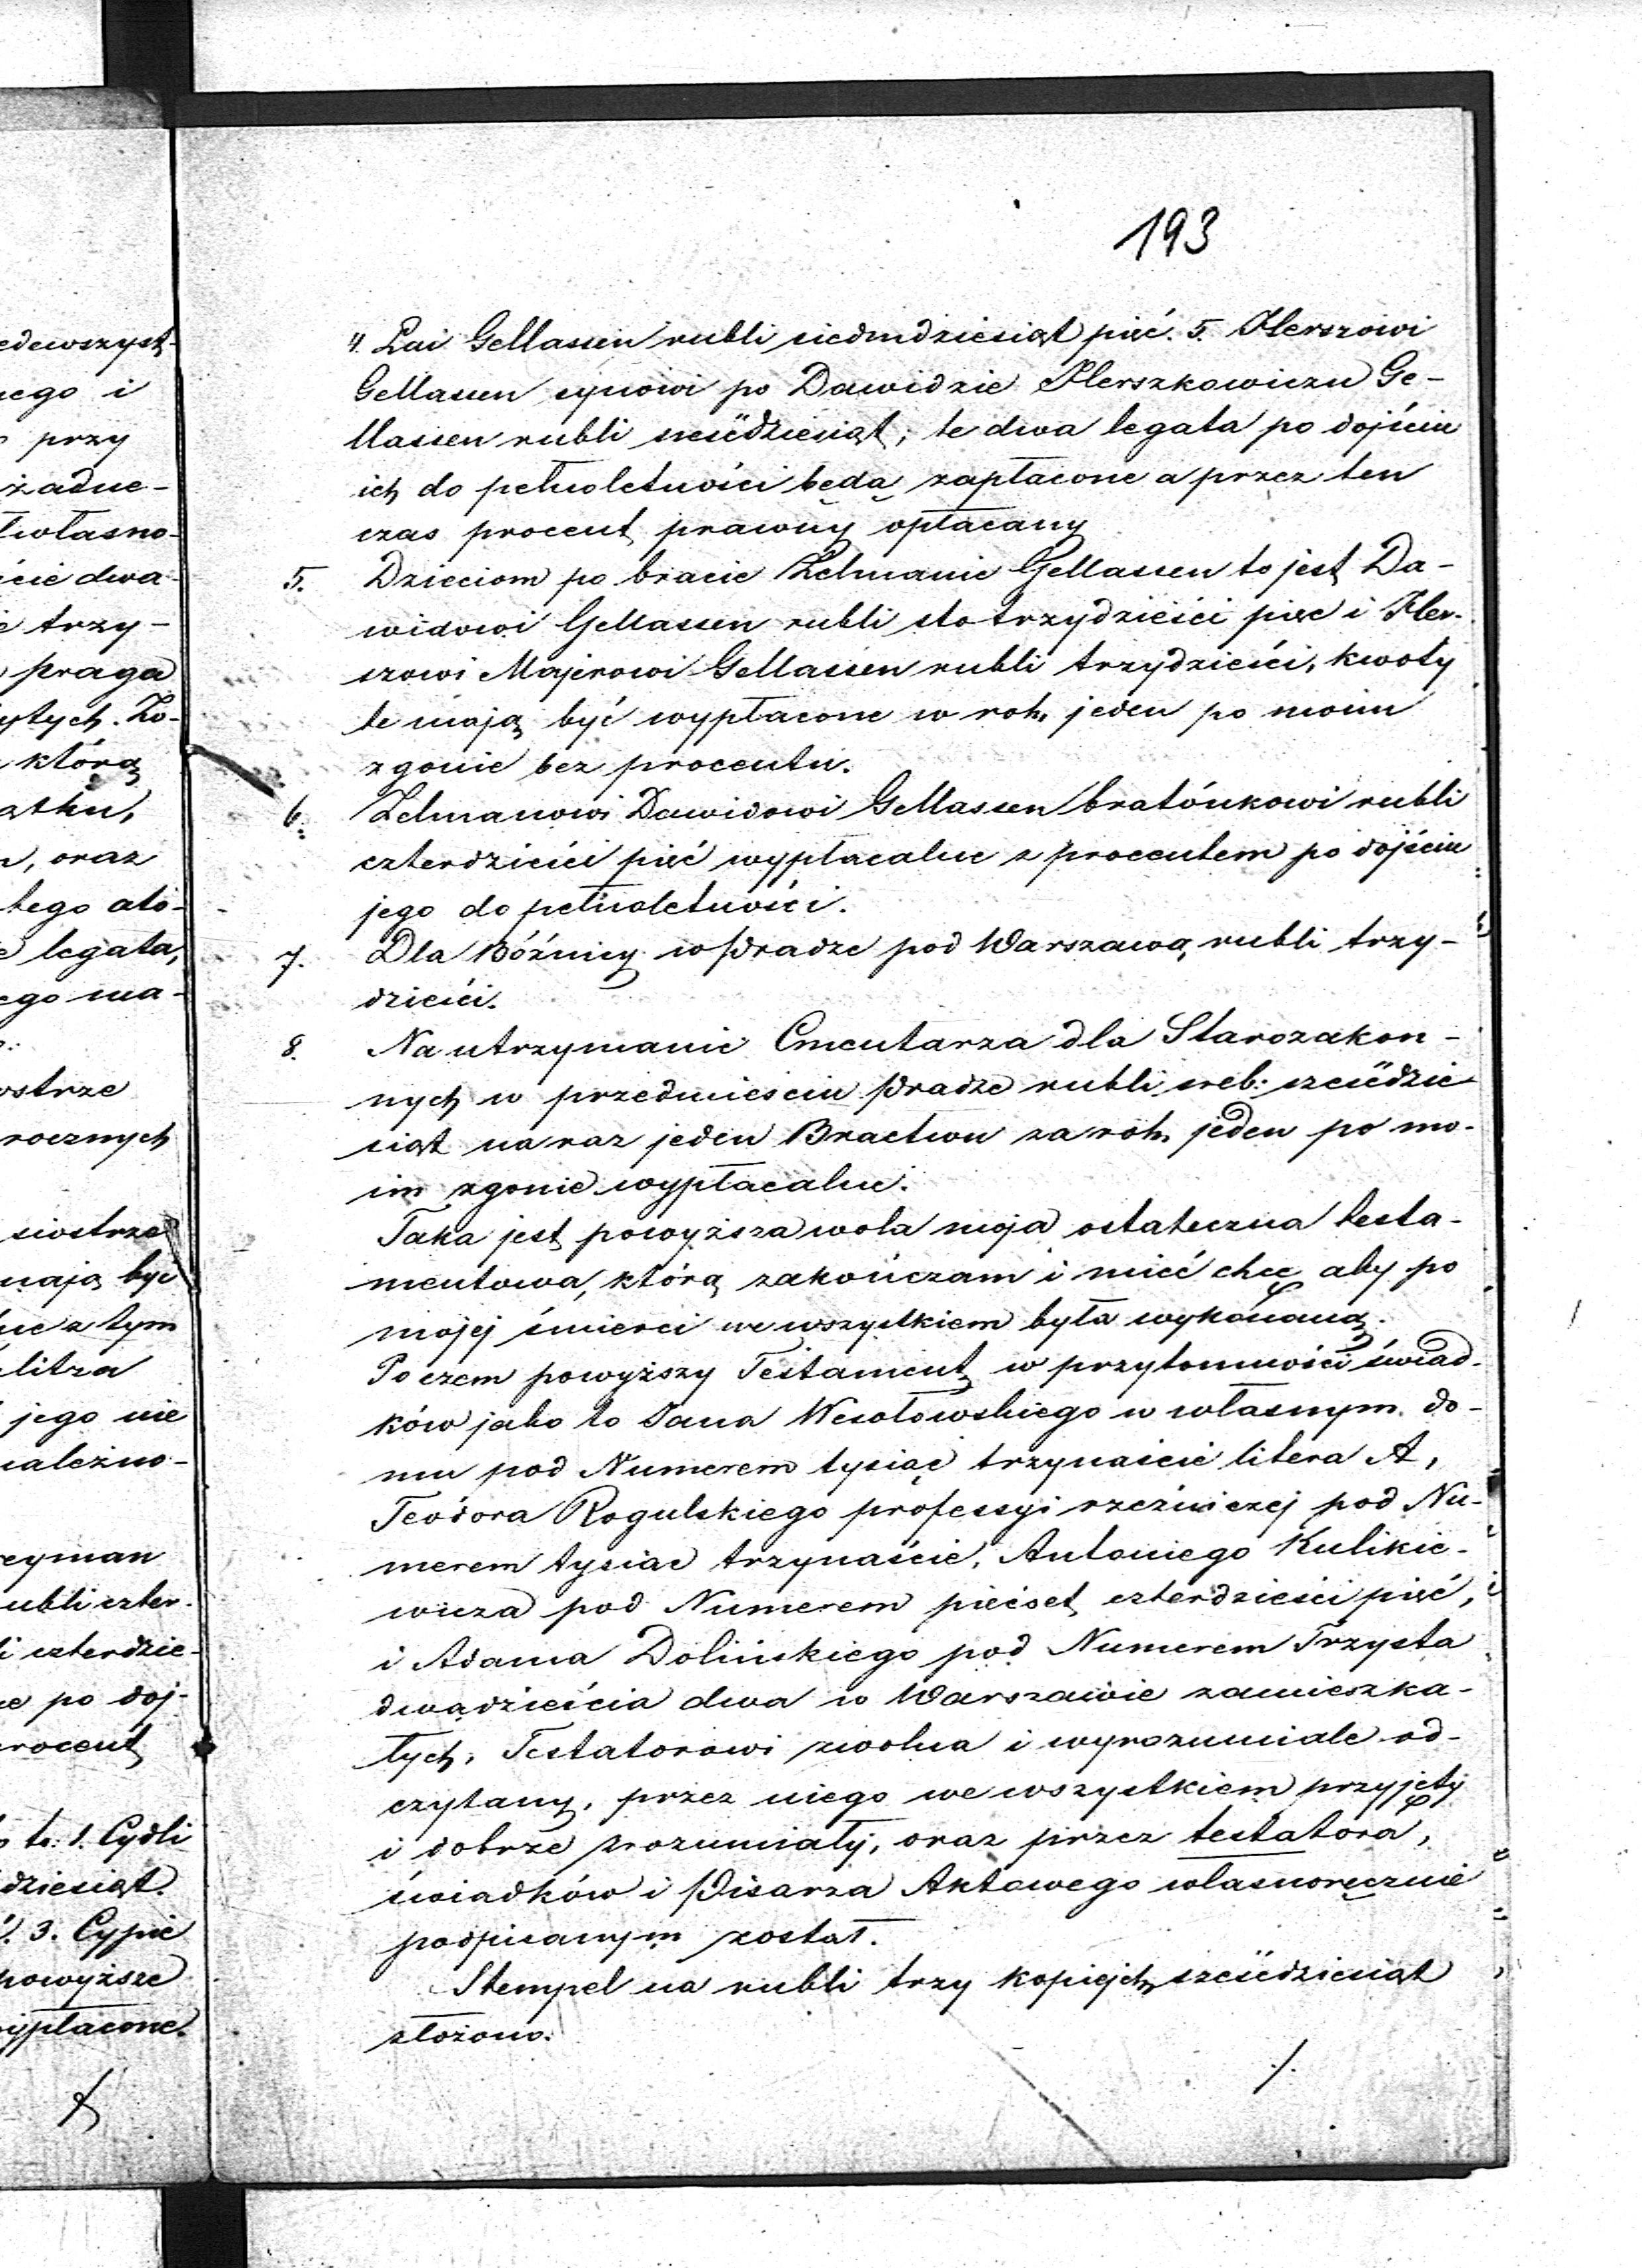 193
4. Lai Gellassen rubli siedmdziesiąt pięć. 5. Herszowi
Gellassen synowi po Dawidzie Herszkowiczu Ge-
llassen rubli sześćdziesiąt; te dwa legata po dojściu
ich do pełnoletności będą zapłacone a przez ten
czas procent prawny opłacany
5. Dzieciom po bracie Zelmanie Gellassen to jest Da-
widowi Gellassen rubli sto trzydzieści pięć i Her-
szowi Majerowi Gellassen rubli trzydzieści, kwoty
te mają być wypłacone w rok jeden po moim
zgonie bez procentu.
6. Zelmanowi Dawidowi Gellassen bratónkowi rubli
czterdzieści pięć wypłacalne z procentem po dojściu
jego do pełnoletności.
7. Dla Bóżnicy w Pradze pod Warszawą rubli trzy-
dzieści.
8. Na utrzymanie Cmentarza dla Starozakon-
nych w przedmieściu Pradze rubli sreb: sześćdzie-
siąt na raz jeden Bractwu za rok jeden po mo-
im zgonie wypłacalne.
Taka jest powyższa wola moja ostateczna testa-
mentowa, którą zakończam i mieć chcę aby po
mojej śmierci we wszystkiem była wykonaną.
Poczem powyższy Testament w przytomności świad-
ków jako to Jana Wesołowskiego w własnym do-
mu pod Numerem tysiąc trzynaście litera A,
Teodora Rogulskiego professyi rzeźniczej pod Nu-
merem tysiąc trzynaście, Antoniego Kulikie-
wicza pod Numerem pięćset czterdzieści pięć,
i Adama Dolińskiego pod Numerem Trzysta
dwadzieścia dwa w Warszawie zamieszka-
łych, Testatorowi zwolna i wyrozumiale od-
czytany, przez niego we wszystkiem przyjęty
i dobrze zrozumiały, oraz przez testatora,
świadków i Pisarza Aktowego własnoręcznie
podpisanym został.
Stempel na rubli trzy kopiejek sześćdziesiąt
złożono.
./.
edewszyst-
nego i
przy
żadne-
własno-
ście dwa
trzy-
praga
Zo-
którą
oraz
tego
legata,
ego ma-
rocznych
siostrze
mają być
z tym
litra
jego nie
należno-
ubli czter-
i czterdzie-
po doj-
procent
to: 1. Cydli
dziesiąt.
3. Cypie
powyższe
wypłacone.